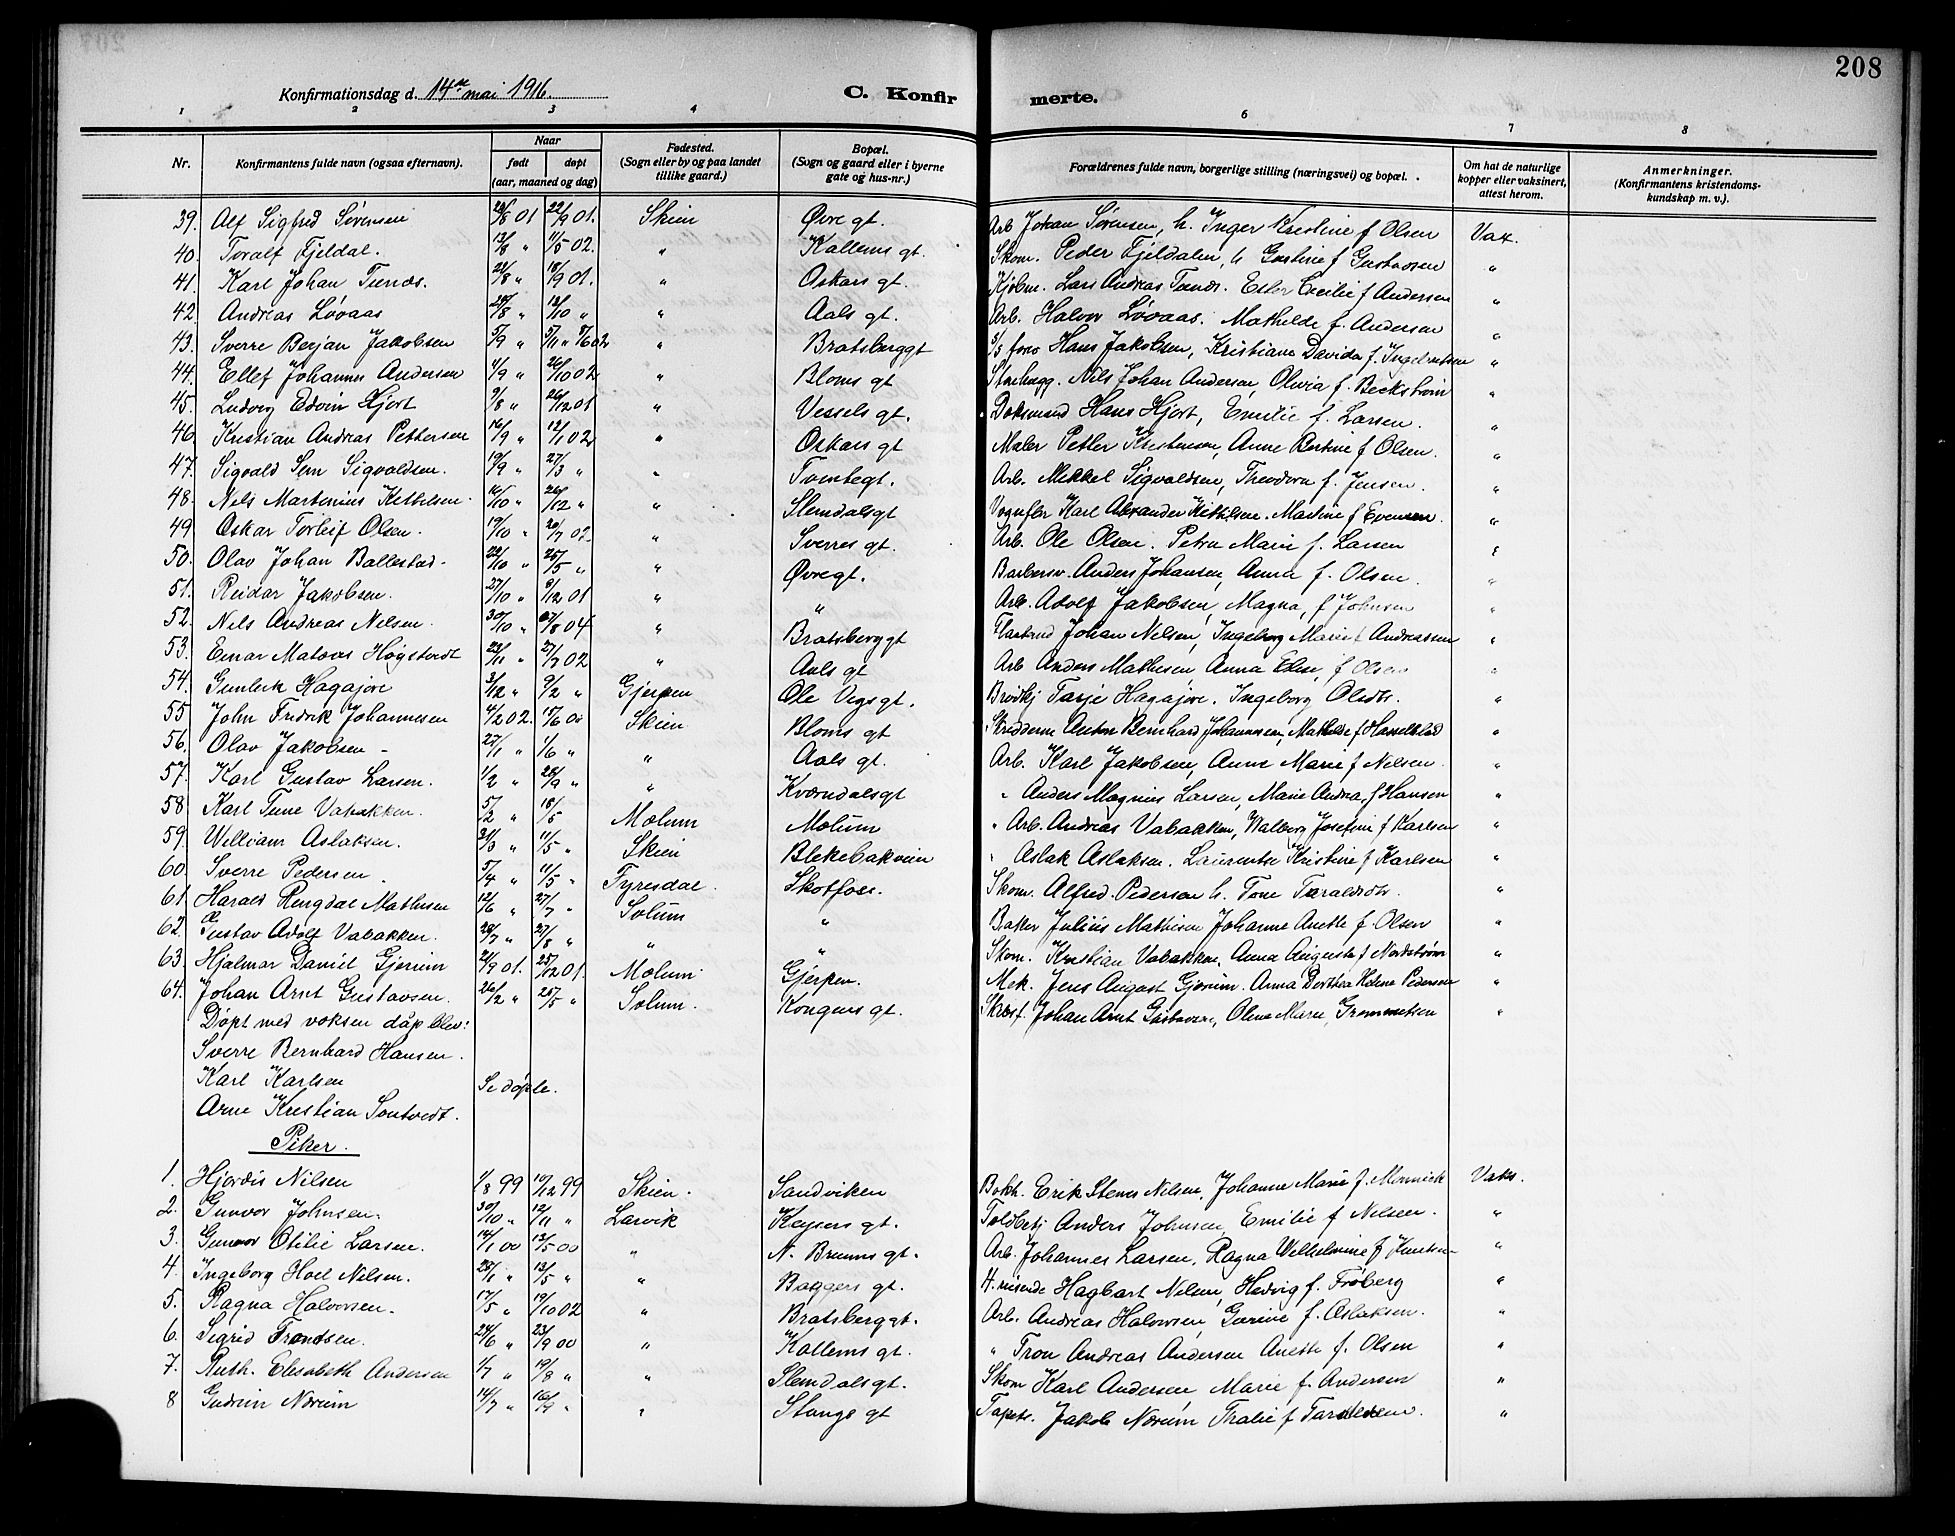 208
Konfirmationsdag d. 14de mai 1916. C. Konfirmerte.
1 2 3 4 6 7 8
Nr. Konfirmantens fulde navn (ogsaa efternavn). Naar født døpt (aar, maaned og dag) Fødested. (Sogn eller by og paa landet tillike gaard.) Bopæl. (Sogn og gaard eller i byerne gate og hus-nr.) Forældrenes fulde navn, borgerlige stilling (næringsvei) og bopæl. Om hat de naturlige kopper eller vaksinert, attest herom. Anmerkninger. (Konfirmantens kristendomskundskap m. v.).
39. Alf Sigfred Sørensen 01 22/9 01. Skien Øvre gt. Arb Johan Sørensen, h. Inger Kristine f Olsen Vax.
40. Toralf Fjeldal. " 11/5 02. " Kallems gt. Skom. Peder Fjeldalen, h Gustine f Gustavsen "
41. Karl Johan " 18/9 01. " Oskars gt. Kjøbm. Lars Andreas Ester Cecilie f Andersen "
42 Andreas Løvaas " 13/10 " " Aals gt. Arb. Halvor Løvaas. Mathilde f. Andersen "
43. Sverre Berjan Jakobsen 5/9 " " Bratsberggt Hans Jakobsen, Kristiane Davida f. "
44. Ellef Johannes Andersen 4/9 " 26/10 02 " Bloms gt Stenhugg. Nils Johan Andersen, Olivia f. Beckstrøm "
45. Ludvig Edvin Hjort 9/8 " 26/12 01 " Vessels gt. Hans Hjort, Emilie f. Larsen. "
46 Kristian Andreas Pettersen 16/9 " 12/1 02 " Oskars gt Maler Petter Kristensen, Anne Bertine f Olsen. "
47. Sigvald Sem Sigvaldsen. 19/9 " 27/3 " " Tomtegt. Arb. Mikkel Sigvaldsen, Theodora f. Jensen. "
48. Nels Martinius Kittilsen. 16/10 " 26/12 " " Slemdalsgt Karl Alexander Kittilsen. Martine f Evensen. "
49 Oskar Torleif Olsen. 19/10 " 20/7 02. " Sverres gt. Arb. Ole Olsen. Petra Marie f. Larsen "
50. Olav Johan Ballestad. 22/10 " 25/5 " " Øvregt. Barbersv. Anders Johansen, Anna f. Olsen. "
51. Reidar Jakobsen. 27/10 " 8/12 01 " " Arb. Adolf Jakobsen, Magna, f Johnsen "
52. Nils Andreas Nelsen. 30/10 " /8 04 " Bratsberggt Johan Nelsen, Ingeborg Marie f Andreassen "
53. Einar Matæus Høgstvedt 22/11 " 27/7 02 " Aals gt Arb Anders Mathesen, Anna Elise, f Olsen "
54. Gunleik Hagajore 3/12 " 9/2 " Gjerpen Ole Vegs gt. Brødkj Tarje Hagajore. Ingeborg Olsdtr. "
55 John Fredrik Johannesen 4/2 02. 15/6 Skien Bloms gt Skredderm Anton Bernhard Johannesen, Mathilde f Hasselblad "
56. Olav Jakobsen 27/1 " 1/6 " " Aals gt. Arb. Karl Jakobsen, Anne Marie f Nelsen. "
57. Karl Gustav Larsen. 1/2 " 28/9 " " Kværndalsgt " Anders Magnus Larsen, Marie Andrea, f Hansen "
58 Karl Tune Vabakken. 5/2 " 18/5 Mælum Mælum " Arb. Andreas Vabakken, Walborg Josefine f Karlsen "
59. William Aslaksen. 31/3 " 11/5 " Skien Blekebakveien " Aslak Aslaksen. Laurentse Kristine f Karlsen "
60. Sverre Pedersen 5/4 " 11/5 " Fyresdal. Skotfoss. Skom. Alfred Pedersen h. Tone Taraldsdtr. "
61 Harald Ringdal Mathisen 12/6 " 27/7 " Solum " Baker Julius Mathisen Johanne Anette f. Olsen "
62. Gustav Adolf Vabakken. 28/7 " 27/8 " " " Skom. Kristian Vabakken, Anna Augusta f Nordstrøm "
63. Hjalmar Daniel Gjerum 21/9 01. 25/12 01. Mælum. Gjerpen. Mek. Jens August Gjerum. Anna Dorthea Helene Pedersen "
64. Johan Arnt Gustavsen. 26/2 " 25/5 " Solum. Kongens gt. Johan Arnt Gustavsen, Olene Marie "
Døpt med voksen dåp blev:
Sverre Bernhard Hansen.
Karl Karlsen Se døpte.
Arne Kristian Sontvedt.
Piker.
1. Hjørdis Nilsen 1/8 99 10/12 99 Skien. Sandviken Bokh. Erik Stenes Nilsen, Johanne Marie f. Vaks.
2. Gunvor Johnsen. 30/10 " 12/11 " Larvik Keysers gt. Toldbetj Anders Johnsen Emilie f Nilsen. "
3. Gunvor Otilie Larsen. 14/1 00 13/5 00 " N. Bruuns gt. Arb. Johannes Larsen, Ragna Wilhelmine f Knutsen "
4. Ingeborg Hoel Nelsen. 25/1 " 13/5 " " Baggers gt. H. reisende Hagbart Nelsen, Hedvig f. Frøberg "
5. Ragna Halvorsen. 17/5 " 19/10 02 " Bratsberggt. Arb. Andreas Halvorsen, Gurine f. Aslaksen. "
6. Sigrid Trondsen. 24/6 " 23/9 00 " Kallems gt. " Tron Andreas Andersen Anette f. Olsen "
7. Ruth. Elisabeth Andersen 1/7 " 19/8 " " Slemdalsgt. Skom Karl Andersen Marie f. Andersen "
8 Gudrun Norum 14/7 " 16/9 " " Stangs gt Tapets. Jakob Norum Thalie f Taraldsen. "